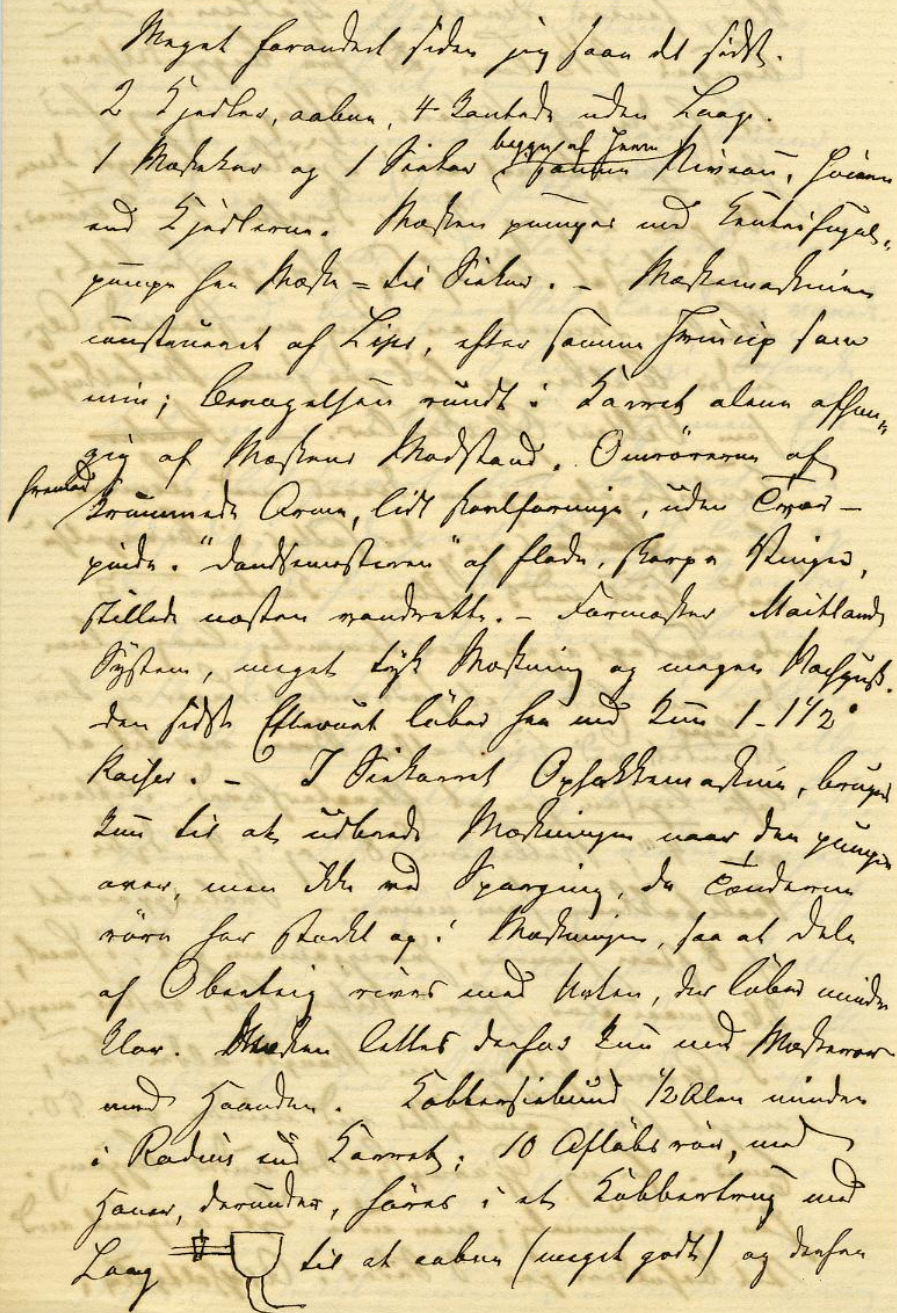 Meget forandret siden jeg saae det sidst.
2 Kjedler, aabne, 4 kantede uden Laag.
1 Mæskekar og 1 Siekar begge af Jern i samme Niveau, høiere
end Kjedlerne. Mæsken pumpes med Centrifugal-
pumpe fra Mæske= til Siekar. - Mæskemaskinen
construeret af Lips, efter samme Princip som
min; Bevægelsen rundt i Karret alene afhæn-
gig af Mæskens Modstand. Omrørerne af
fremad krummede Arme, lidt , uden Tvær-
pinde. "Dandsemesteren" af flade, skarpe Vinger,
stillede næsten vandrette. - Formasker Maitlands
System, meget tyk Mæskning og megen Nachguss.
den sidste Efterurt løber fra med kun 1-1 1/2°
Kaiser. - I Siekarret Ophakkemaskine, bruges
kun til at udbrede Mæskningen naar den pumpes
over, men ikke ved Sparging, da Tænderne
røre for stærkt op i Mæskningen, saa at Dele
af Oberteig rives med Urten, der løber mindre
klar. Mæsken lettes derfor kun med Mæskerør
med Haanden. Kobbersiebund 1/2 Alen mindre
i Radius end Karret; 10 Afløbsrør, med
Haner, derunder, føres i et Kobbertrug med
Laag til at aabne (meget godt) og derfra